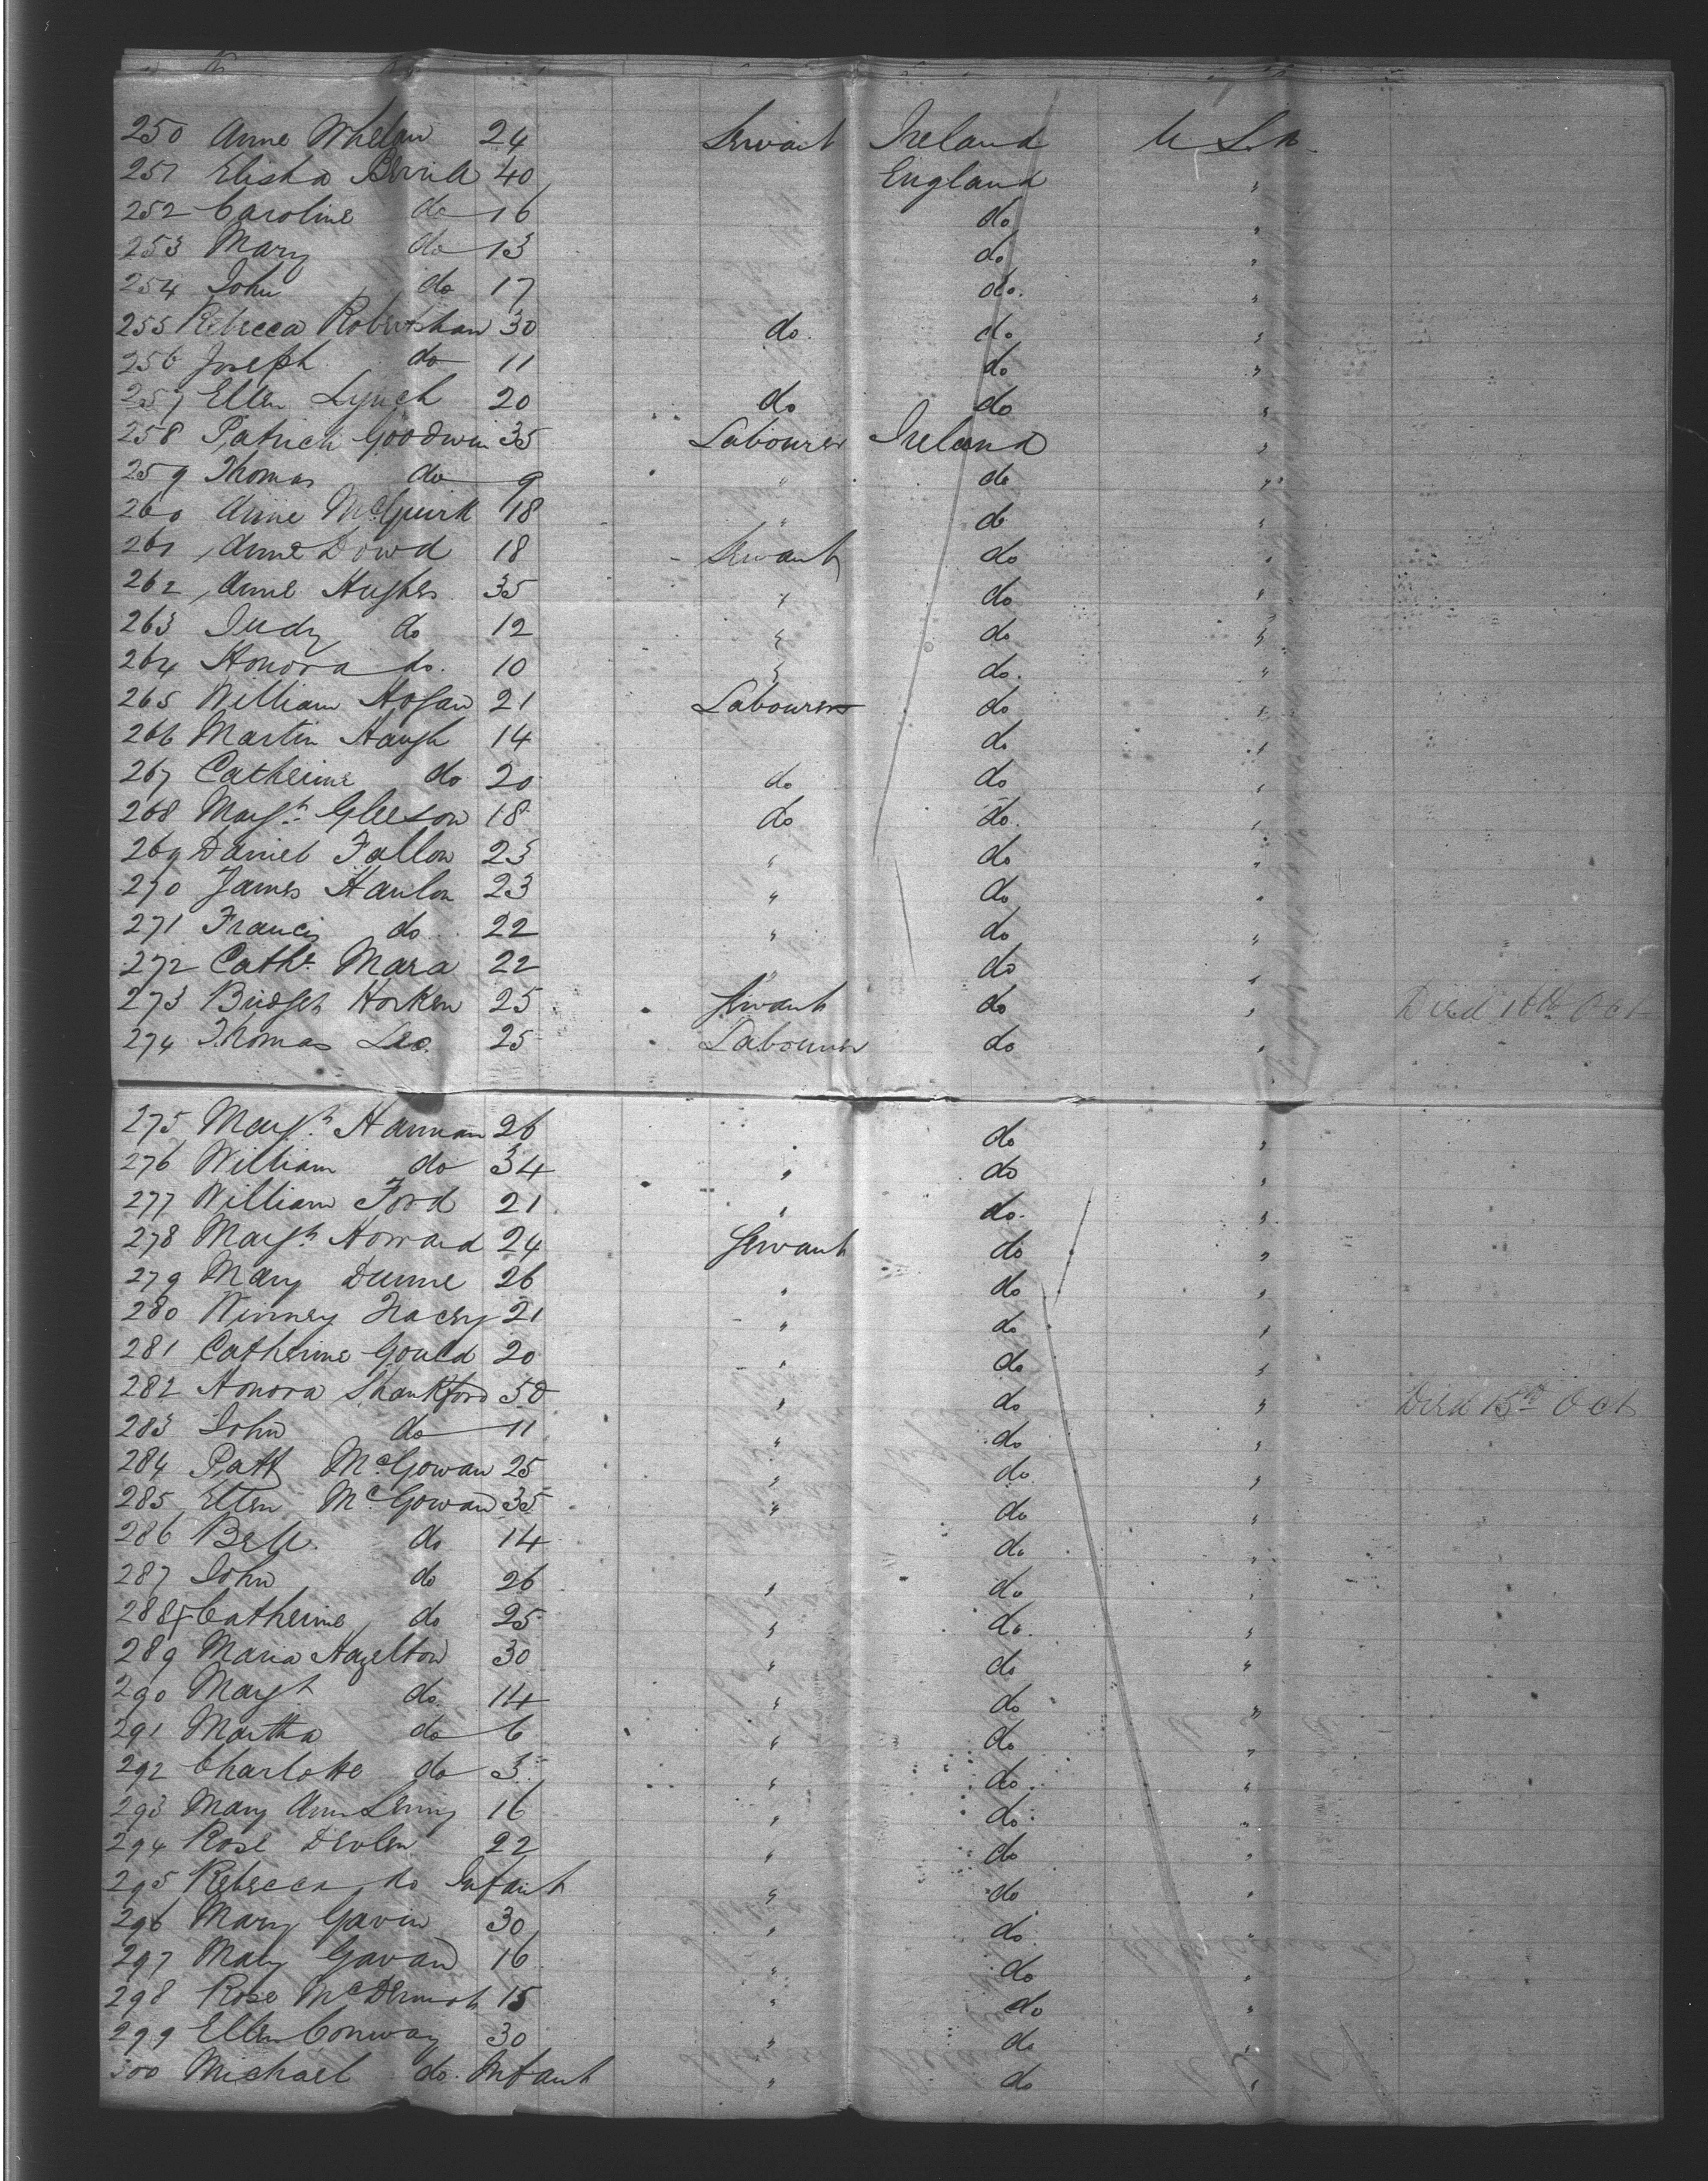 250 Anne Whelan 24 Servant Ireland U.S.A.
251 Elisha 40 England "
252 Caroline do 16 do "
253 Mary do 13 do "
254 John do 17 do. "
255 Rebecca Robertshaw 30 do. do "
256 Joseph do 11 do "
257 Ellen Lynch 20 do do "
258 Patrick Goodwin 35 Labourer Ireland "
259 Thomas do 9 " do "
260 Anne McGuirk 18 " do "
261 Anne Dowd 18 Servant do "
262 Anne Hughes 35 " do "
263 Judy do 12 " do "
264 Honora do. 10 " do. "
265 William Hogan 21 Labourer do "
266 Martin Haugh 14 do "
267 Catherine do 20 do do "
268 Margt. Gleeson 18 do do. "
269 Daniel Fallon 23 " do "
270 James Hanlon 23 " do "
271 Francis do 22 " do "
272 Cathe. Mara 22 " do "
273 Bridget Horken 25 Servant do " Died 16th Oct
274 Thomas Leo. 25 Labourer do "
275 Margt. Hannan 26 " do "
276 William do 34 " do "
277 William Ford 21 " do. "
278 Margt. Howard 24 Servant do "
279 Mary Dunne 26 " do "
280 Winney Tracey 21 " do "
281 Catherine Gould 20 " do "
282 Honora Shankford 50 " do " Died 15th Oct
283 John do 11 " do "
284 Patt McGowan 25 " do "
285 Ellen McGowan 35 " do "
286 Bell. do 14 do "
287 John do 26 " do "
288 Catherine do 25 " do. "
289 Maria Hazelton 30 " do "
290 Margt. do. 14 " do "
291 Martha do 6 " do "
292 Charlotte do 3 " do "
293 Mary Ann 16 " do "
294 Rose Devlen 22 " do "
295 Rebecca do Infant " do "
296 Mary Gavin 30 " do "
297 Mary Gavan 16 " do "
298 Rose McDermot 15 " do "
299 Ellen Conway 30 " do "
300 Michael do. Infant " do "